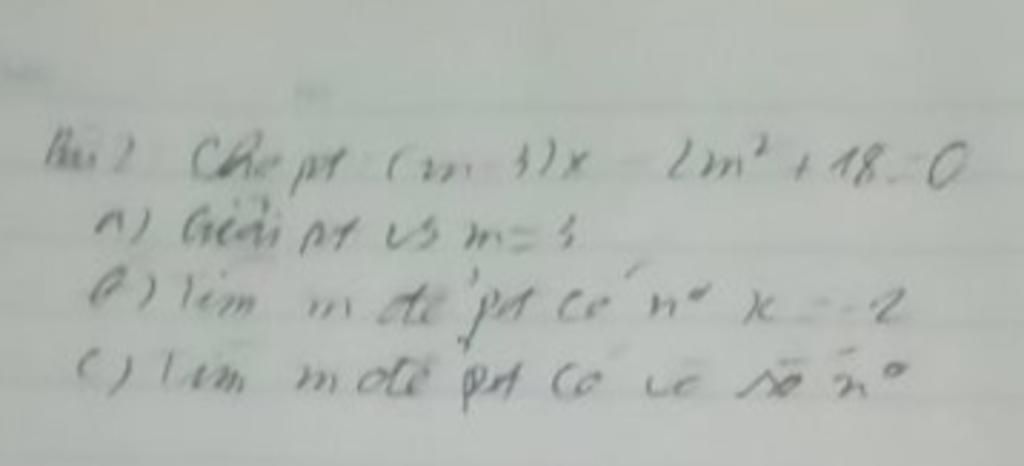 Bài 2 Cho pt (m-3)x - 2m² + 18 = 0
a) Giải pt vs m = 3
b) Tìm m để pt có n° x = -2
c) Tìm m để pt có vô số n°